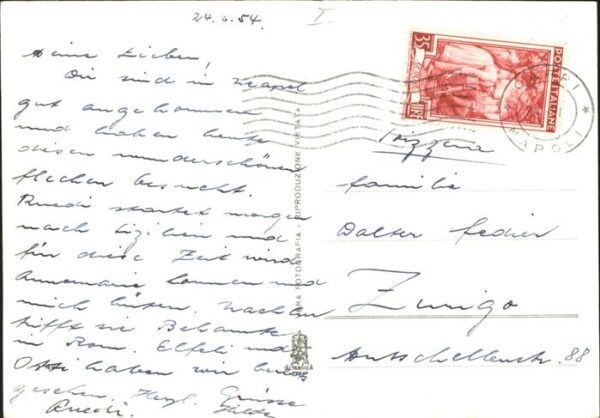 24.6.54.
I
Meine Lieben!
Wir sind in Neapel
gut angekommen
und haben heute
diesen wunderschönen
flecken besucht.
Ruedi startet morgen
nach Sizilien und
für diese Zeit wird
Annemarie kommen und
mich hüten. Nachher
trifft sie Bekannte
in Rom. Elfeli und
Otti haben wir bereits
gesehen. Herzl. Grüsse
Ruedi. Hilde
VERA FOTOGRAFIA - RIPRODUZIONE VIETATA
POSTE ITALIANE
LIRE
35
CAPRI
NAPOLI
Svizzera
familie
Walter
Zurigo
Mutschellenstr. 88